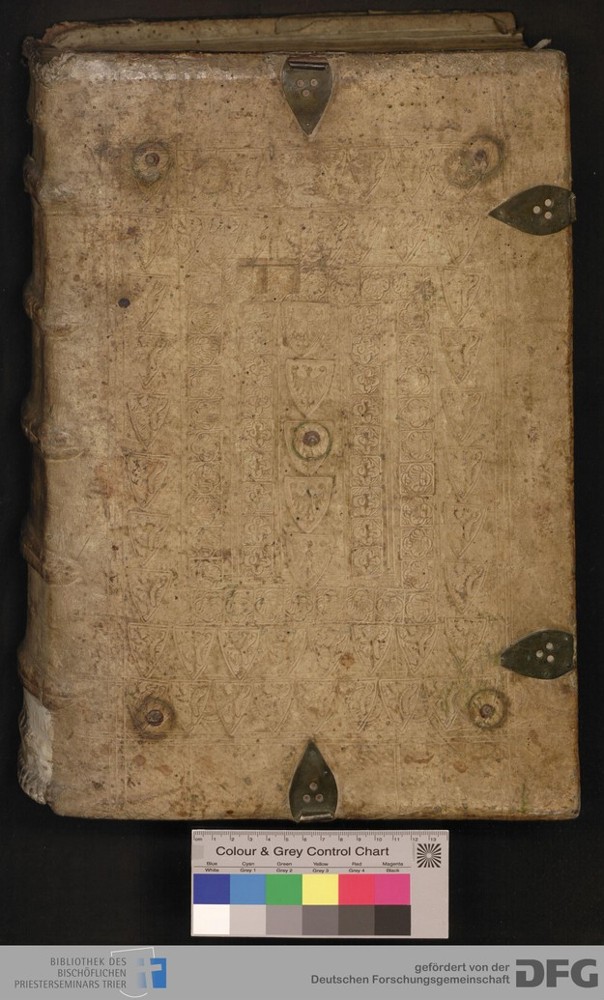 cm 1 2 3 4 5 6 7 8 9 10 11 12 13
Colour & Grey Control Chart
Blue Cyan Green Yellow Red Magenta
White Grey 1 Grey 2 Grey 3 Grey 4 Black
BIBLIOTHEK DES
BISCHÖFLICHEN
PRIESTERSEMINARS TRIER
gefördert von der
Deutschen Forschungsgemeinschaft
DFG